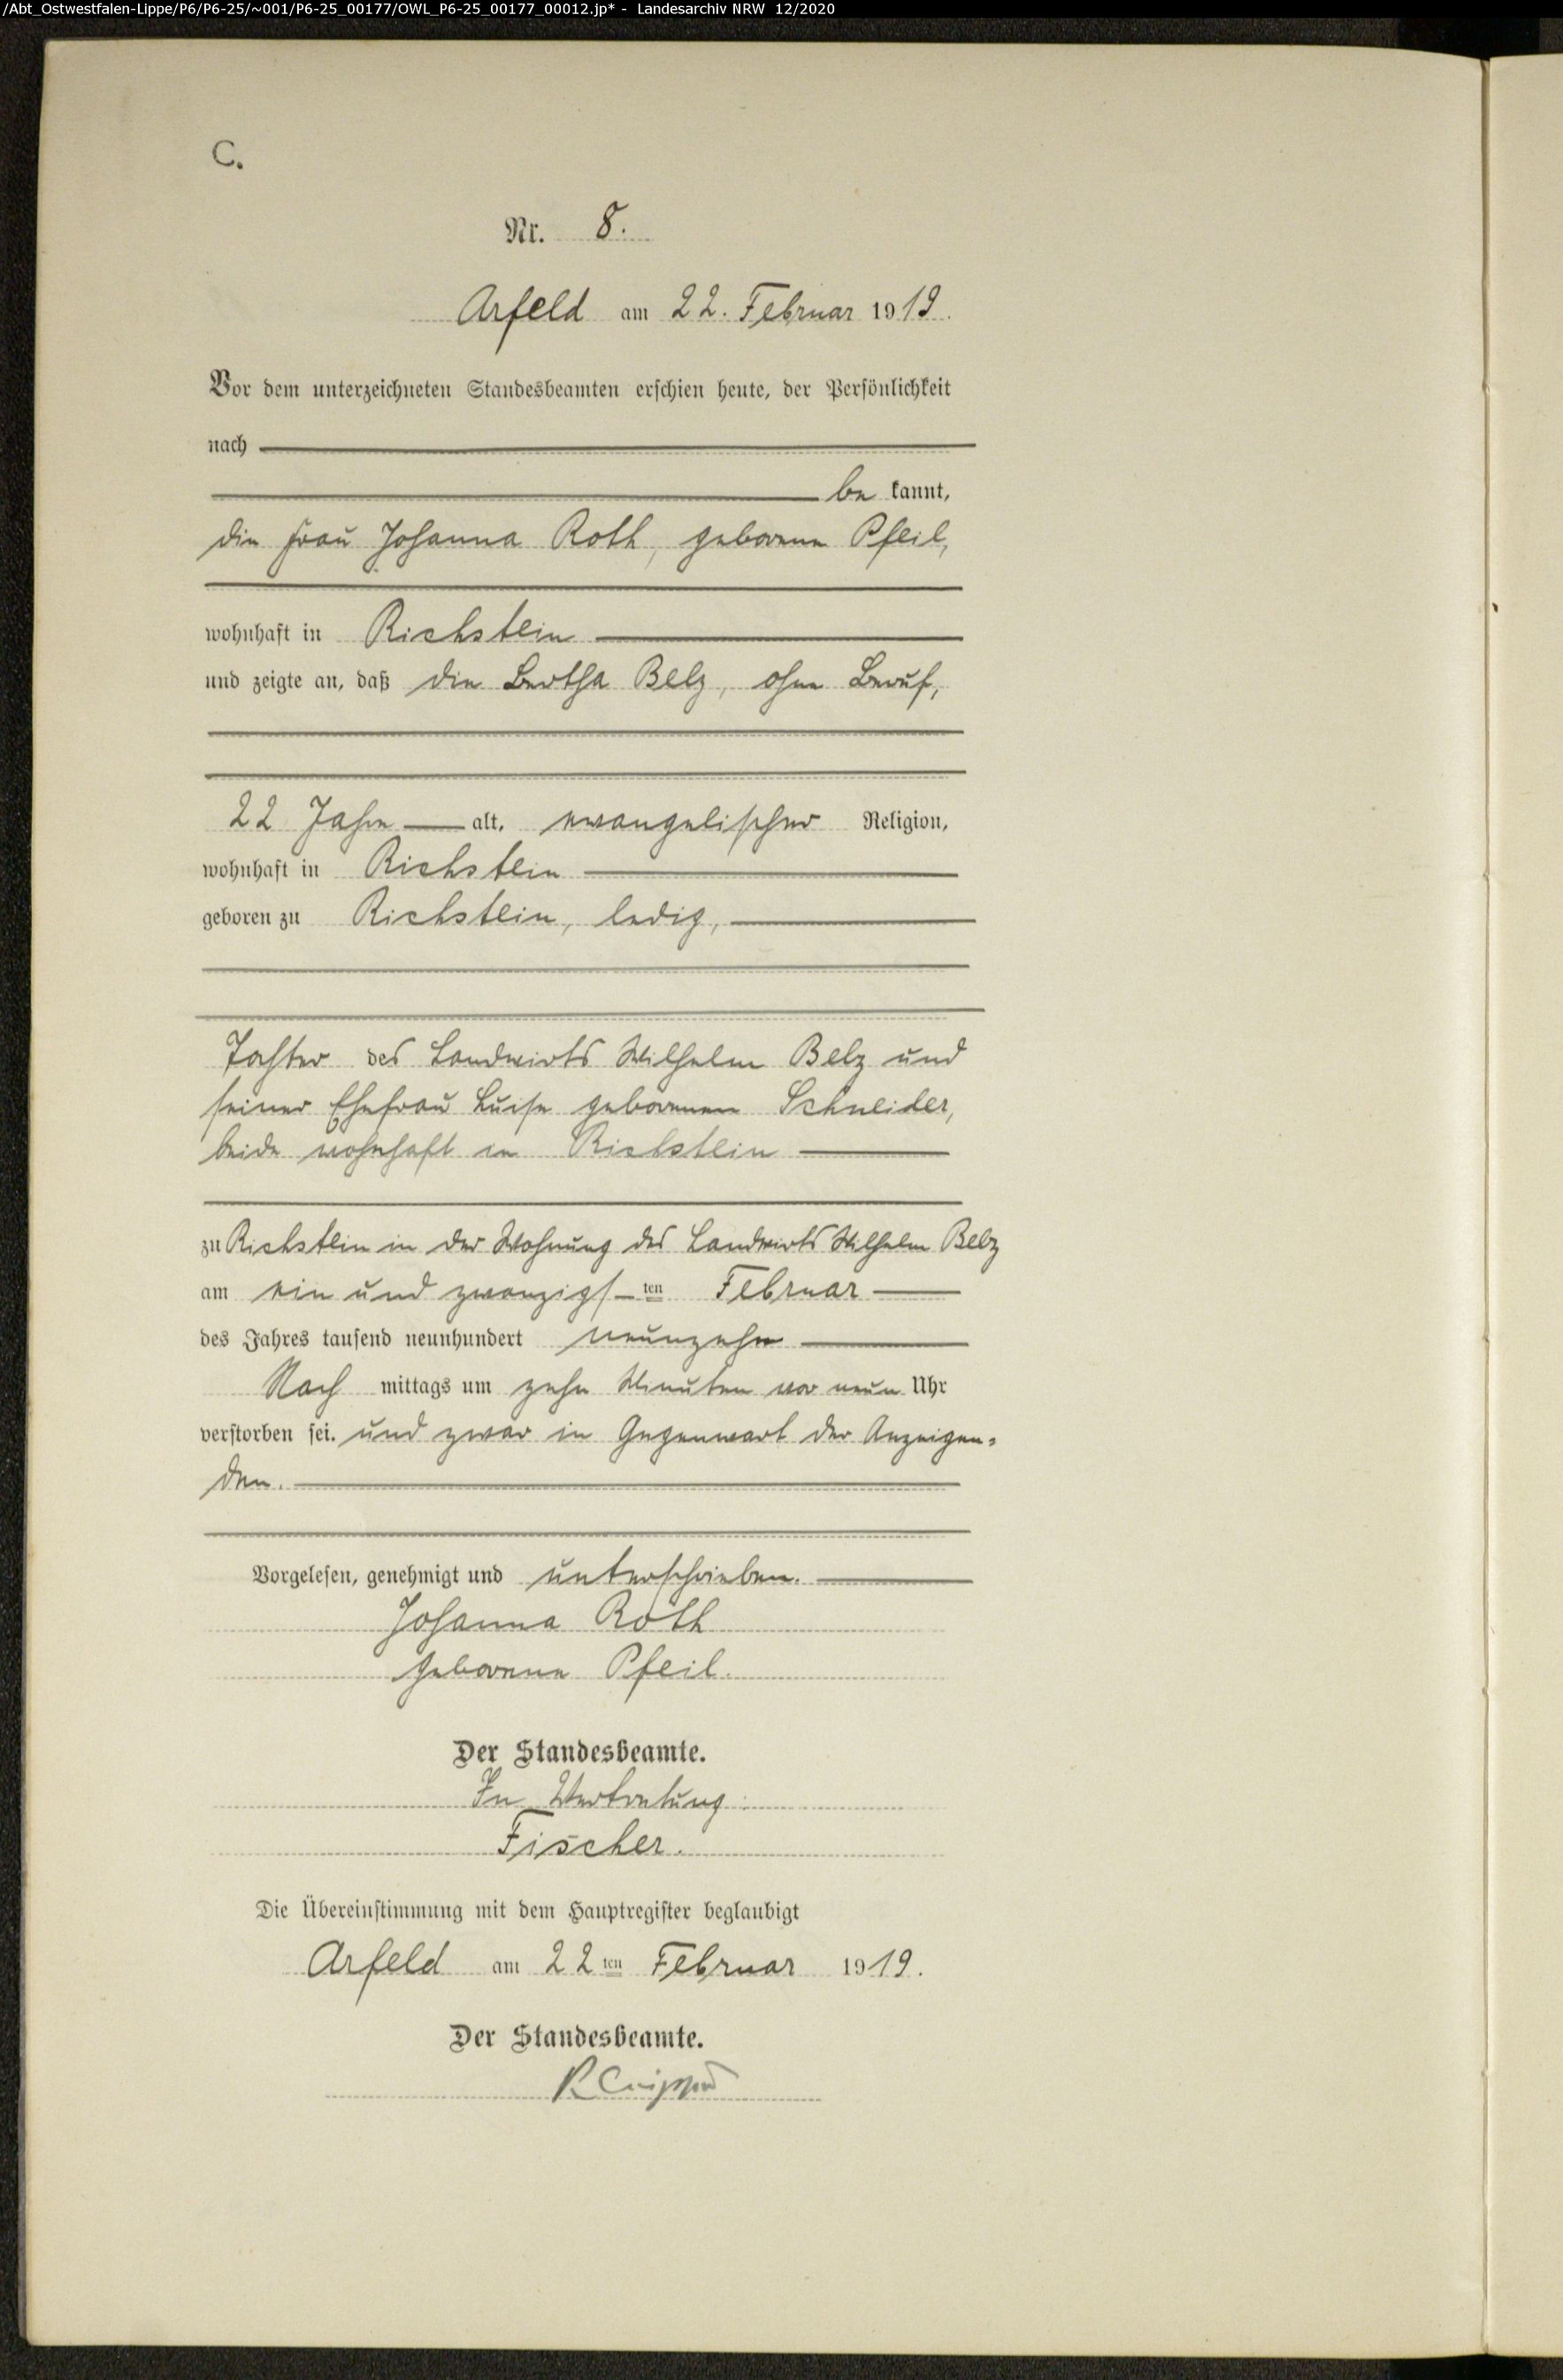 /Abt_Ostwestfalen-Lippe/P6/P6-25/~001/P6-25_00177/OWL_P6-25_00177_00012.jp* - Landesarchiv NRW 12/2020
C.
Nr. 8.
Arfeld am 22. Februar 1919.
Vor dem unterzeichneten Standesbeamten erschien heute, der Persönlichkeit
nach
be kannt,
die Frau Johanna Roth, geborene Pfeil,
wohnhaft in Richstein
und zeigte an, daß die Bertha Belz, ohne Beruf,
22 Jahre alt, evangelischer Religion,
wohnhaft in Richstein
geboren zu Richstein, ledig,
Tochter des Landwirts Wilhelm Belz und
seiner Ehefrau Luise geborenen Schneider,
beide wohnhaft in Richstein
zu Richstein in der Wohnung des Landwirts Wilhelm Belz
am ein und zwanzigs ten Februar
des Jahres tausend neunhundert neunzehn
Nach mittags um zehn Minuten vor neun Uhr
verstorben sei. und zwar in Gegenwart der Anzeigen=
den.
Vorgelesen, genehmigt und unterschrieben.
Johanna Roth
geborene Pfeil.
Der Standesbeamte.
In Vertretung:
Fischer.
Die Übereinstimmung mit dem Hauptregister beglaubigt
Arfeld am 22 ten Februar 1919.
Der Standesbeamte.